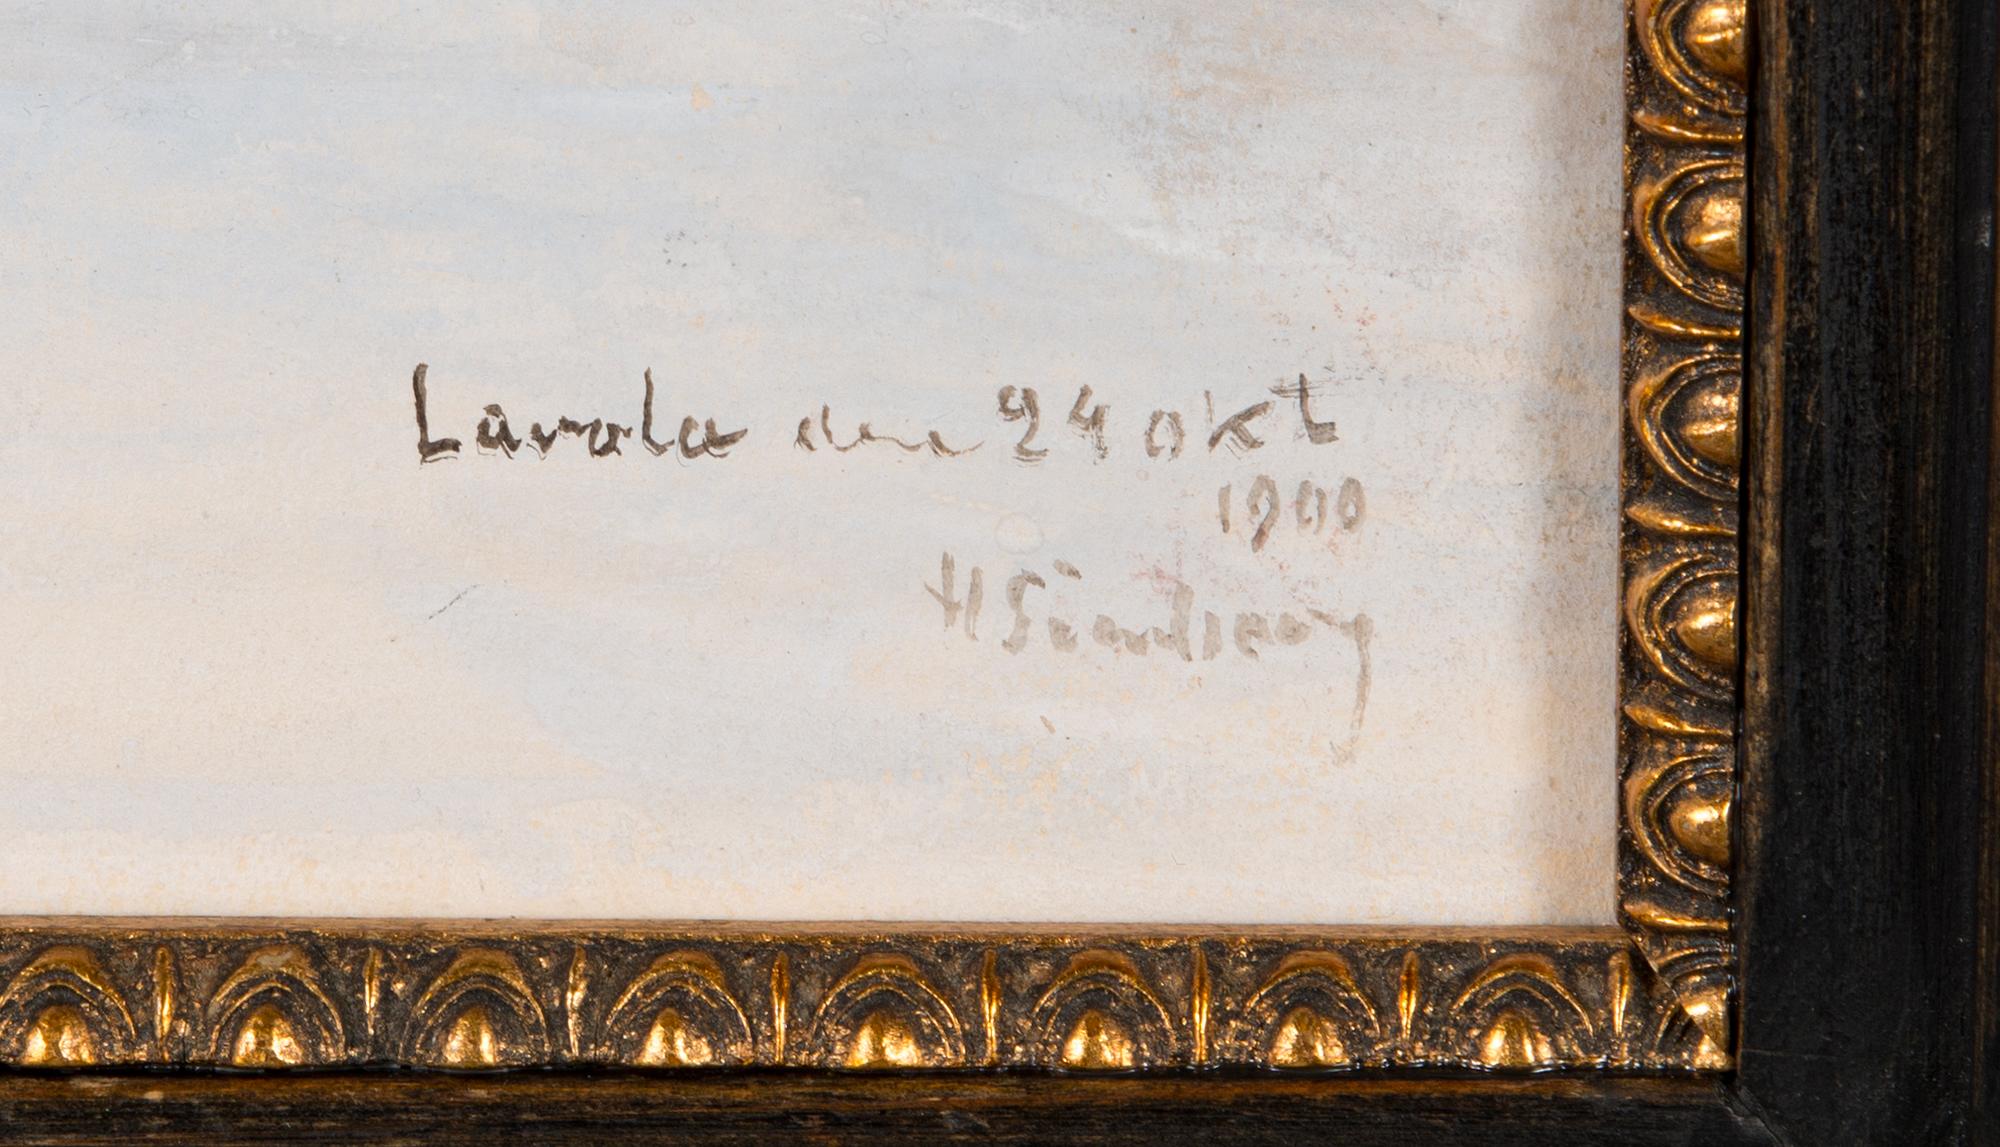 Lavola den 24 okt
1900
H Sandberg